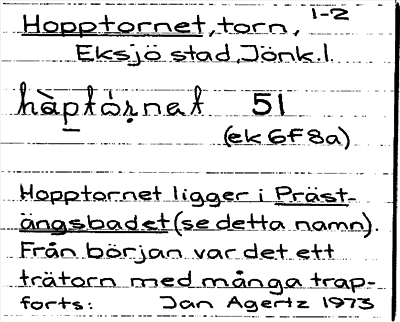 1-2
Hopptornet, torn,
Eksjö stad, Jönk.l.
hàptὁṛnət 51
(ek 6F8a)
Hopptornet ligger i Präst-
ängsbadet (se detta namn).
Från början var det ett
trätorn med många trap-
forts: Jan Agertz 1973